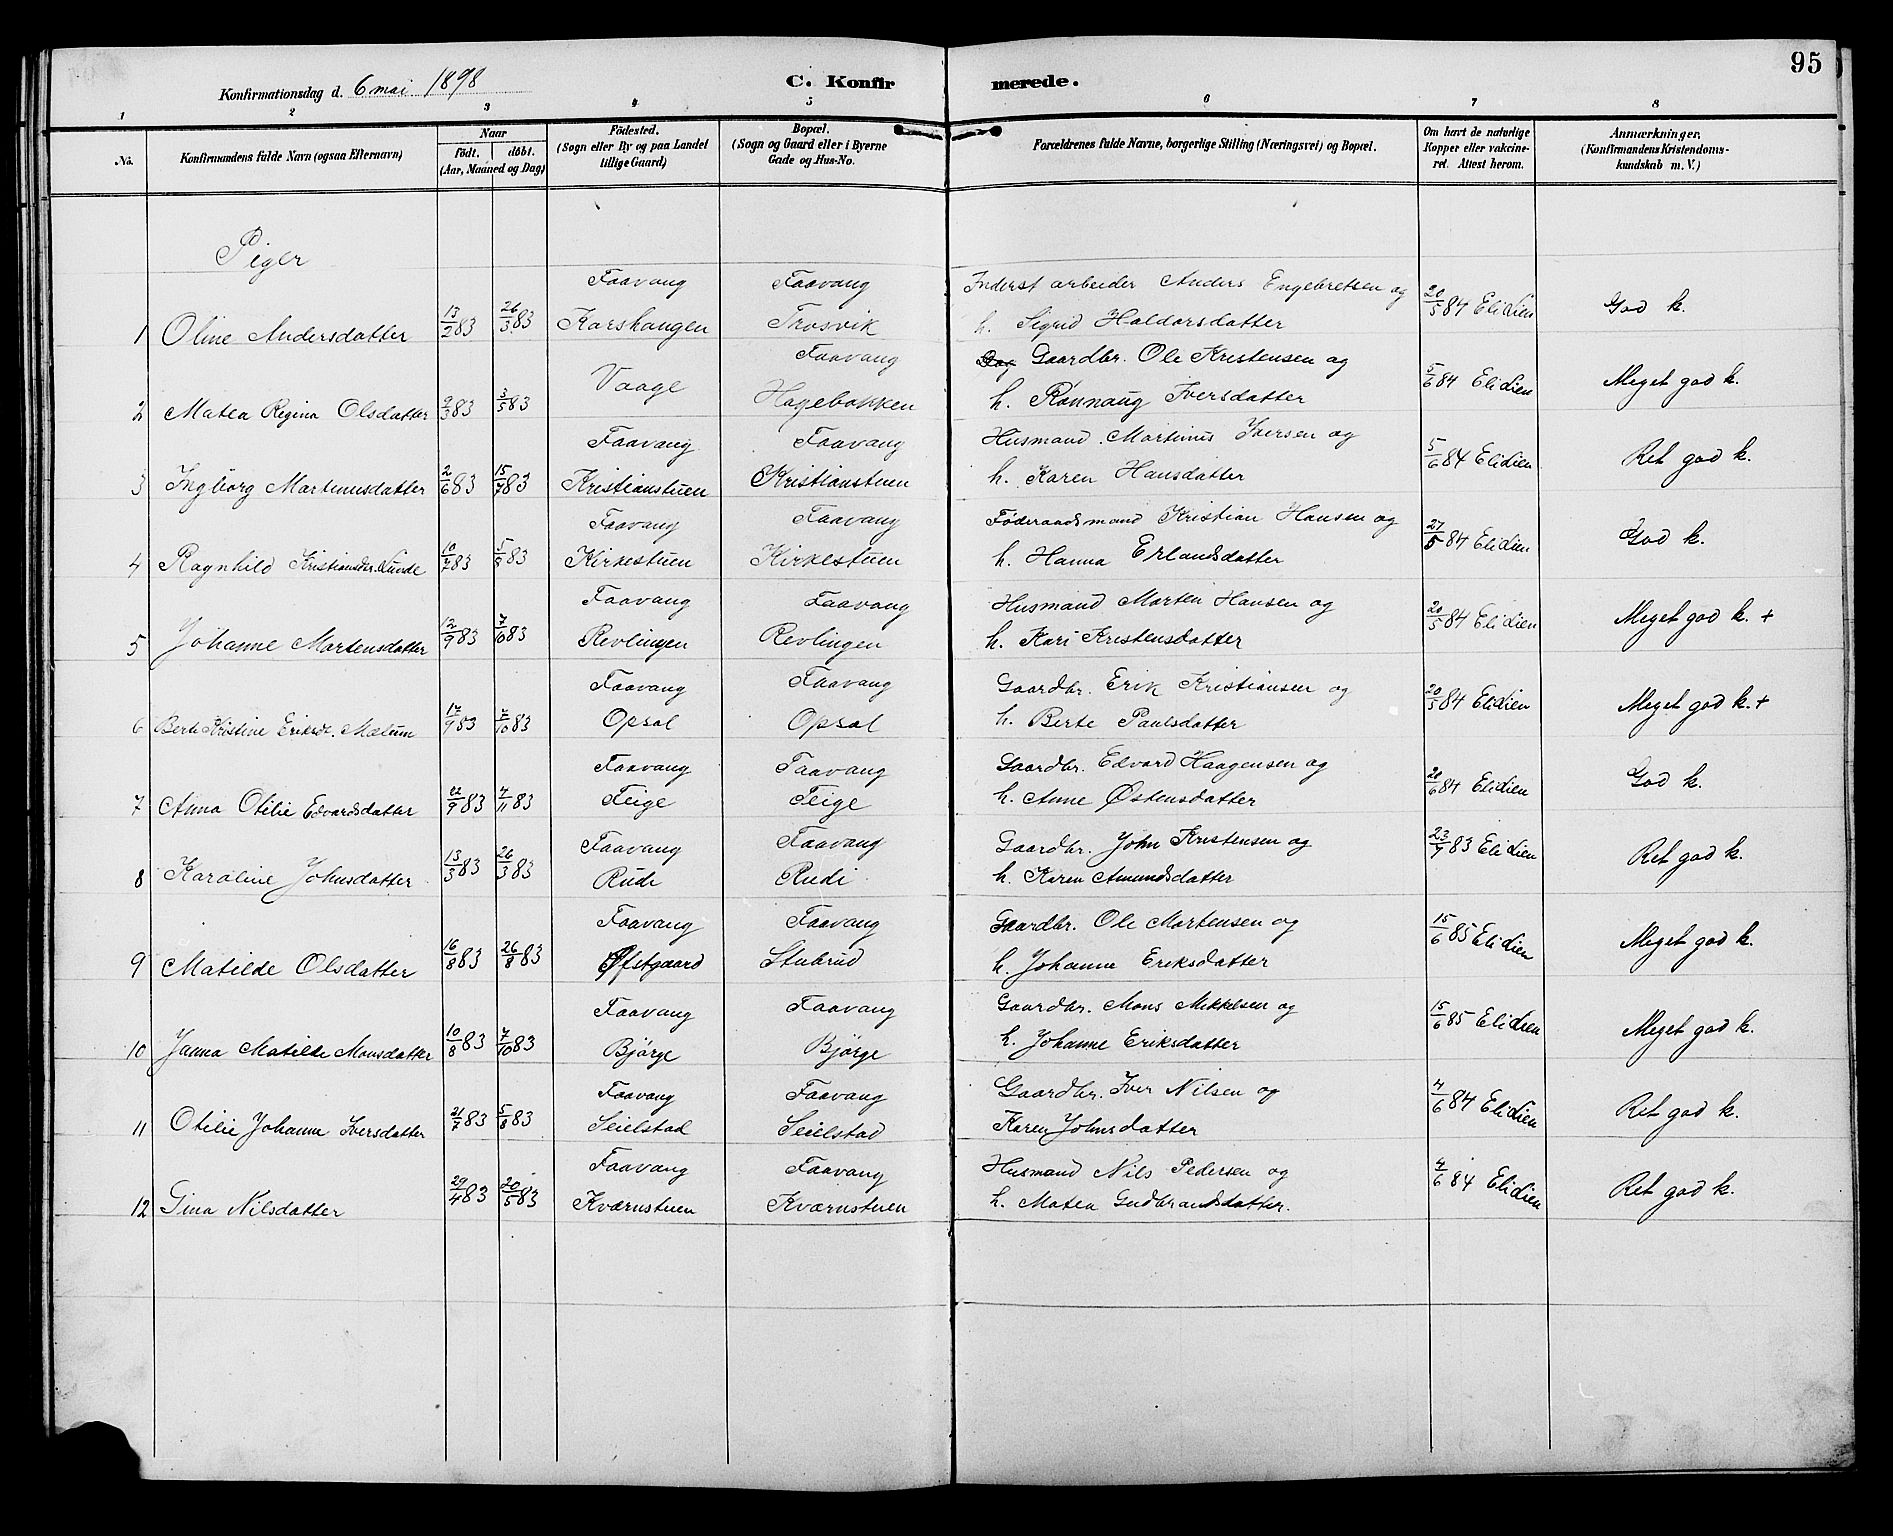 95
Konfirmationsdag d. 6 mai 1898
C. Konfirmerede.
1 2 3 4 5 6 7 8
No. Konfirmandens fulde Navn (ogsaa Efternavn) Naar født. døbt. (Aar, Maaned og Dag) Födested. (Sogn eller By og paa Landet tillige Gaard) Bopæl. (Sogn og Gaard eller i Byerne Gade og Hus-No. Forældrenes fulde Navne, borgerlige Stilling (Næringsvei) og Bopæl. Om havt de naturlige Kopper eller vakcineret. Attest herom. Anmærkninger. (Konfirmandens Kristendomskundskab m. V.)
Piger
Faavang Faavang Inderst arbeider Anders Engebretsen og
1 Oline Andersdatter 13/2 83 26/3 83 Karshaugen Trosvik h. Sigrid Haldorsdatter 20/5 84 Elidien God k.
Faavang Gaardbr. Ole Kristensen og
2 Matea Regina Olsdatter 9/3 83 3/5 83 Vaage Hagebakken h. Rønnaug Iversdatter 5/6 84 Elidien Meget god k.
Faavang Faavang Husmand Martinus Iversen og
3 Ingborg Martinusdatter 2/6 83 15/7 83 Kristianstuen Kristianstuen h. Karen Hansdatter 5/6 84 Elidien Ret god k.
Faavang Faavang Føderaadsmand Kristian Hansen og
4 Ragnhild Kristiansdr. Lunde 10/7 83 5/8 83 Kirkestuen Kirkestuen h. Hanna Erlandsdatter 27/5 84 Elidien God k.
Faavang Faavang Husmand Morten Hansen og
5 Johanne Martensdatter 12/9 83 7/10 83 Revlingen Revlingen h. Kari Kristensdatter 20/5 84 Elidien Meget god k. +
Faavang Faavang Gaardbr. Erik Kristiansen og
6 Berte Kristine Eriksdr. Mælum 17/9 83 7/10 83 Opsal Opsal h. Berte Paulsdatter 20/5 84 Elidien Meget god k. +
Faavang Faavang Gaardbr. Edvard Haagensen og
7 Anna Otilie Edvardsdatter 22/9 83 4/11 83 Teige Teige h. Anne Østensdatter 20/6 84 Elidien God k.
Faavang Faavang Gaardbr. John Kristensen og
8 Karoline Johnsdatter 13/3 83 26/3 83 Rudi Rudi h. Karen Amundsdatter 23/9 83 Elidien Ret god k.
Faavang Faavang Gaardbr. Ole Mortensen og
9 Matilde Olsdatter 16/8 83 26/8 83 Øfstgaard Stubrud h. Johanne Eriksdatter 15/6 85 Elidien Meget god k.
Faavang Faavang Gaardbr. Mons Mikkelsen og
10 Janna Matilde Monsdatter 10/8 83 7/10 83 Bjørge Bjørge h. Johanne Eriksdatter 15/6 85 Elidien Meget god k.
Faavang Faavang Gaardbr. Iver Nilsen og
11 Otilie Johanne Iversdatter 21/7 83 5/8 83 Seielstad Seielstad Karen Johnsdatter 4/6 84 Elidien Ret god k.
Faavang Faavang Husmand Nils Pedersen og
12 Gina Nilsdatter 29/4 83 20/5 83 Kværnstuen Kværnstuen h. Matea Gudbrandsdatter. 4/6 84 Elidien Ret god k.